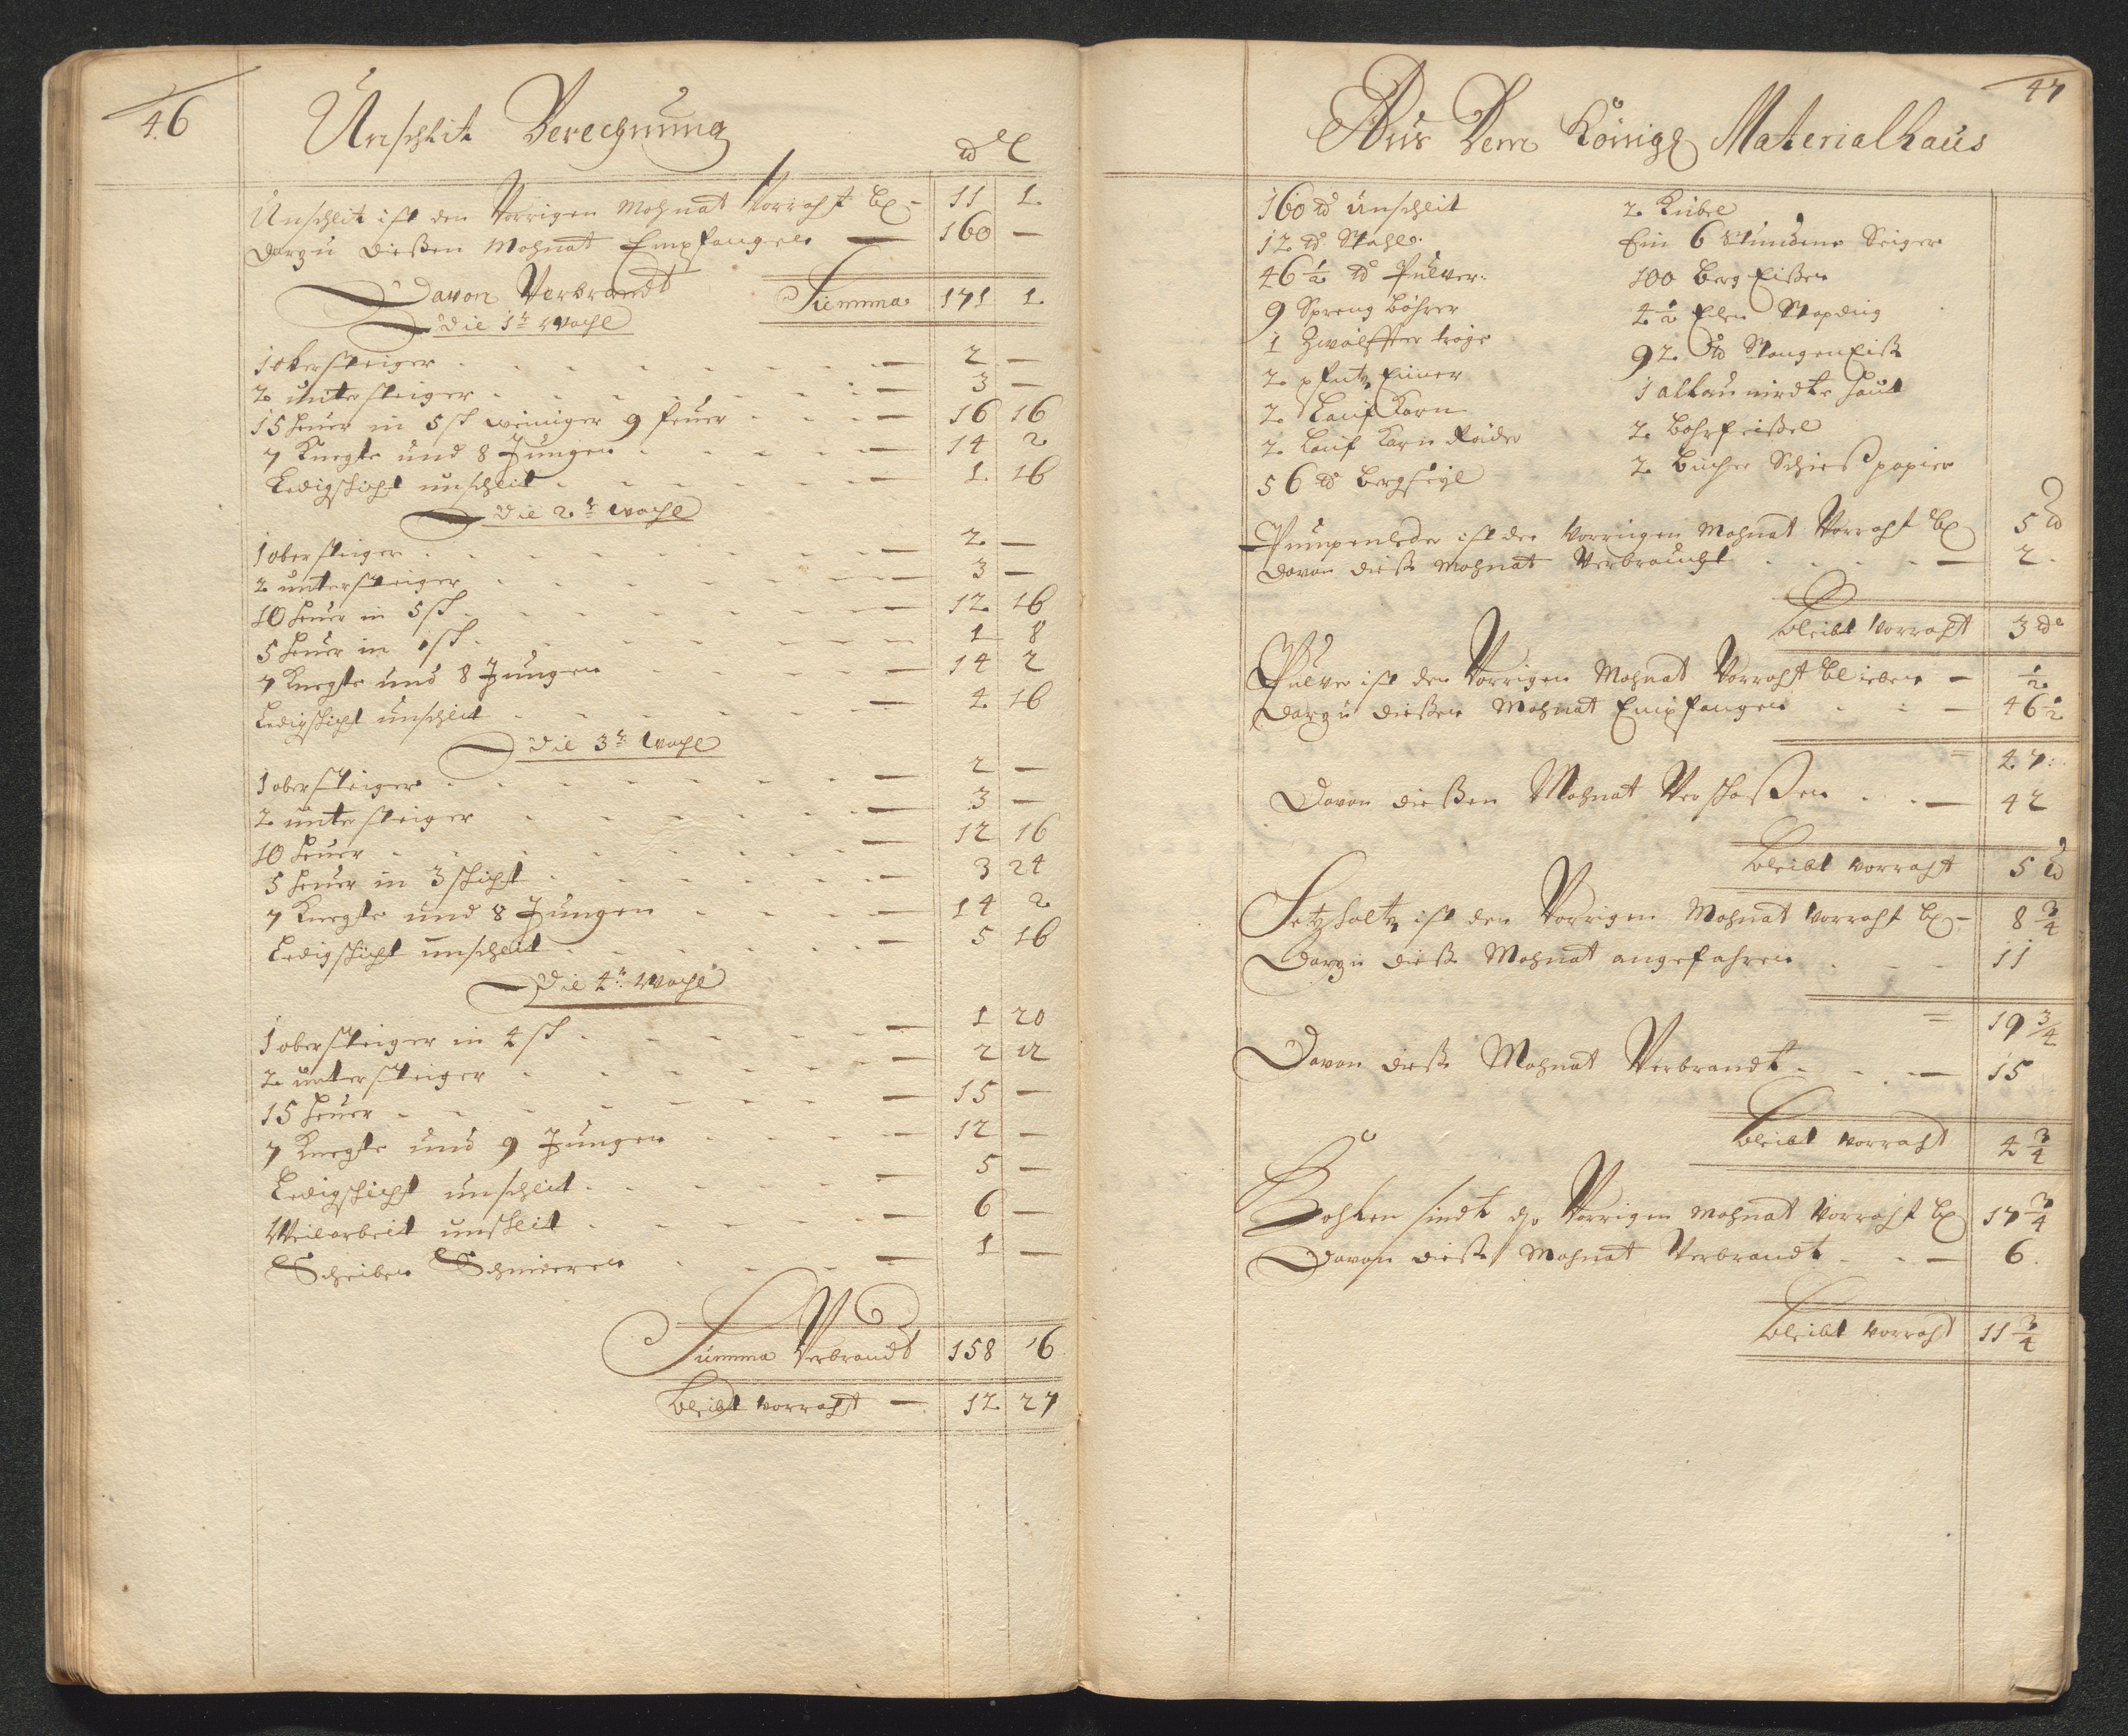 46
Unschlit Berechnung
Unschlit ist den Vorrigen Mohnat Vorraht bl. – 11 1.
Darzu dießen Mohnat Empfangen — 160 —
Davon Verbrandt Summa 171 1.
Die 1te Woche
1 obersteiger . . . — 2 —
2 untersteiger . . . — 3 —
15 heuer in 5 sch weniger 9 heuer . . — 16 16
7 Knegte und 8 Jungen . . . — 14 2
Ledigschicht unschleit . . . — 1. 16
Die 2te Woche
1 obersteiger . . . — 2. —
2 untersteiger . . . — 3 —
10 heuer in 5 sch . . . — 12 16
5 heuer in 1 sch . . . — 1 8
7 Knegte und 8 Jungen . . . — 14 2
Ledigschicht unschleit . . . — 4 16
Die 3te Woche
1 obersteiger . . . — 2 —
2 untersteiger . . . — 3 —
10 heuer . . . — 12 16
5 heuer in 3 schicht . . . — 3 24
7 Knegte und 8 Jungen . . . — 14 2
Ledigschicht unschleit . . . — 5 16
Die 4te Woche
1 obersteiger in 4 sch . . . — 1 20
2 untersteiger . . . — 2 12
15 heuer . . . — 15 —
7 Knegte und 9 Jungen . . . — 12 —
Ledigschicht unschleit . . . — 5 —
Weilarbeit unschleit . . . — 6 —
Scheiben Schmieren . . . — 1 —
Summa Verbrandt 158 16
bleibt vorraht — 12 27
47
Aus Dem Königl Materialhaus
160 td unschleit
12 td Stahl
46 1/2 td Pulver
9 Spreng bohrer
1 Zwölffter tröge
2 pfutz Eimer
2 Lauf Karn
2 Lauf Karn Räder
56 td bergseyl
2 Kübel
Ein 6 stunden Seiger
100 berg Eißen
4 1/2 Elen
92 td Stangen Eiß
1 haut
2 bohrfeißel
2 bücher Schießpapier
Pumpenleder ist den Vorrigen Mohnat Vorraht bl 5 td
Davon dieß Mohnat Verbraucht . . . — 2.
bleibt Vorraht 3 td
Pulver ist den Vorrigen Mohnat Vorraht blieben — 1/2
Darzu dießen Mohnat Empfangen . . — 46 1/2
= 47.
Davon dießen Mohnat Verschoßen . . — 42
bleibt vorraht 5 td
Setzholtz ist den Vorrigen Mohnat Vorraht bl – 8 3/4
Darzu dieß Mohnat angefahren . . . 11
= 19 3/4
Davon dieß Mohnat Verbrandt . . — 15
bleibt vorraht 4 3/4
Kohlen sindt den Vorrigen Mohnat Vorraht bl 17 3/4
Davon dieß Mohnat Verbrandt . . — 6.
bleibt vorraht 11 3/4